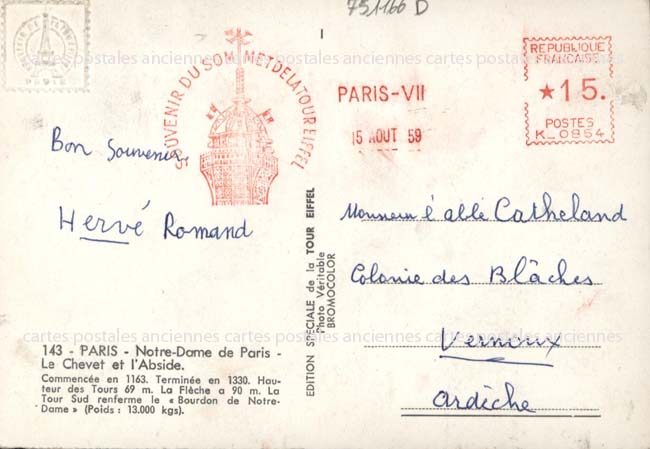 751166 D
SOUVENIR DU SOMMET DE LA TOUR EIFFEL
PARIS-VII
15 AOUT 59
REPUBLIQUE
FRANCAISE
★15.
POSTES
K_0954
cartes postales anciennes cartes postales anciennes cartes postales anciennes
Bon Souvenir
Hervé Romand
EDITION SPÉCIALE de la TOUR EIFFEL
Photo Véritable
BROMOCOLOR
Monsieur é abbé Catheland
Colonie des Blâches
Vernoux
Ardèche
cartes postales anciennes cartes postales anciennes cartes postales anciennes
143 - PARIS - Notre-Dame de Paris -
Le Chevet et l'Abside.
Commencée en 1163. Terminée en 1330. Hau-
teur des Tours 69 m. La Flèche a 90 m. La
Tour Sud renferme le « Bourdon de Notre-
Dame » (Poids : 13.000 kgs).